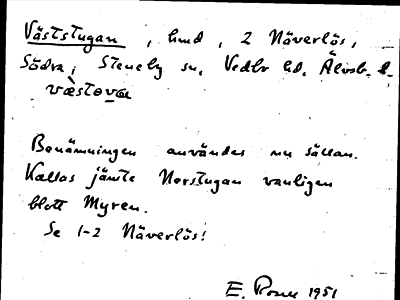 Väststugan, hmd, 2 Näverlös,
Södra, Steneby sn, Vedbo hd, Älvsb. l.
væ̀stəvɯ
Benämningen användes nu sällan.
Kallas jämte Norstugan vanligen
blott Myren.
Se 1-2 Näverlös!
E. 1951